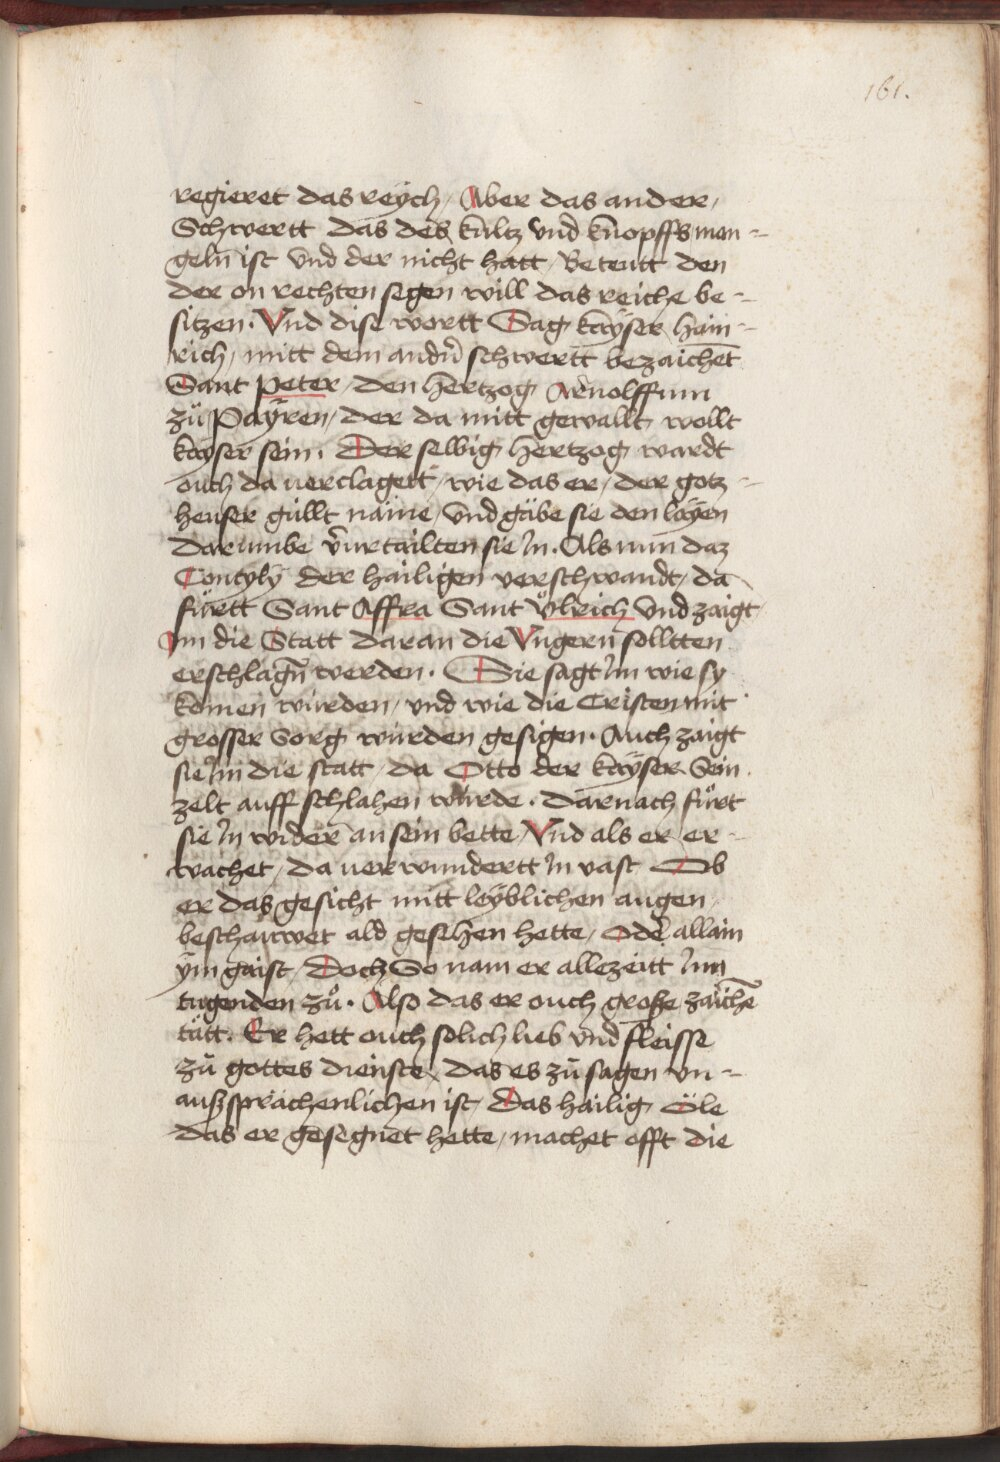 161.
regieret das reÿch / Aber das ander /
Schwertt das des hůltz vnd knopffs man=
geln ist vnd der nicht hatt / beteutt den
der on rechten segen will das reiche be=
sitzen. Vnd dise wortt Sag kaÿser hain=
rich / mitt dem andn̄ schwertt bezaichet
Sant peter / den hertzog Arnolffum
zů Paÿren / der da mitt gewallt wollt
kaÿser sein. Der selbig hertzog wardt
ouch da verclagett / wie das er / der gotz=
heuser güllt näme / vnd gäbe sie den laÿen
darumbe vrurtailten sie In. Als nun daz
Contzylÿ der hailigen verschwandt / da
fürtt Sant Affra Sant Vͦlrich vnd zaigt
Im die Statt daran die Vngern solltten
erschlagn̄ werden. Sie sagt Im wie sy
komen würden / vnd wie die Cristen mit
grosser sorg würden gesigen. Auch zaigt
sie Im die statt / da Otto der kaÿser Sein
zelt auff schlahen würde. Darnach fůrt
sie In wider an sein bette / Vnd als er er=
wachet / da verwundertt In vast Ob
er das gesicht mitt leÿblichen augen
beschauwet ald gesehen hette / Oder allain
ÿm gaist / Doch So nam er allezeitt Inn
tugenden zů. Also das er ouch große zaichē
tätt. Er hett ouch solich lieb vnd fleisse
zů gottes dienste / das es zů sagen vn=
außsprächenlichen ist / Das hailig Öle
das er gesegnet hette / machet offt die